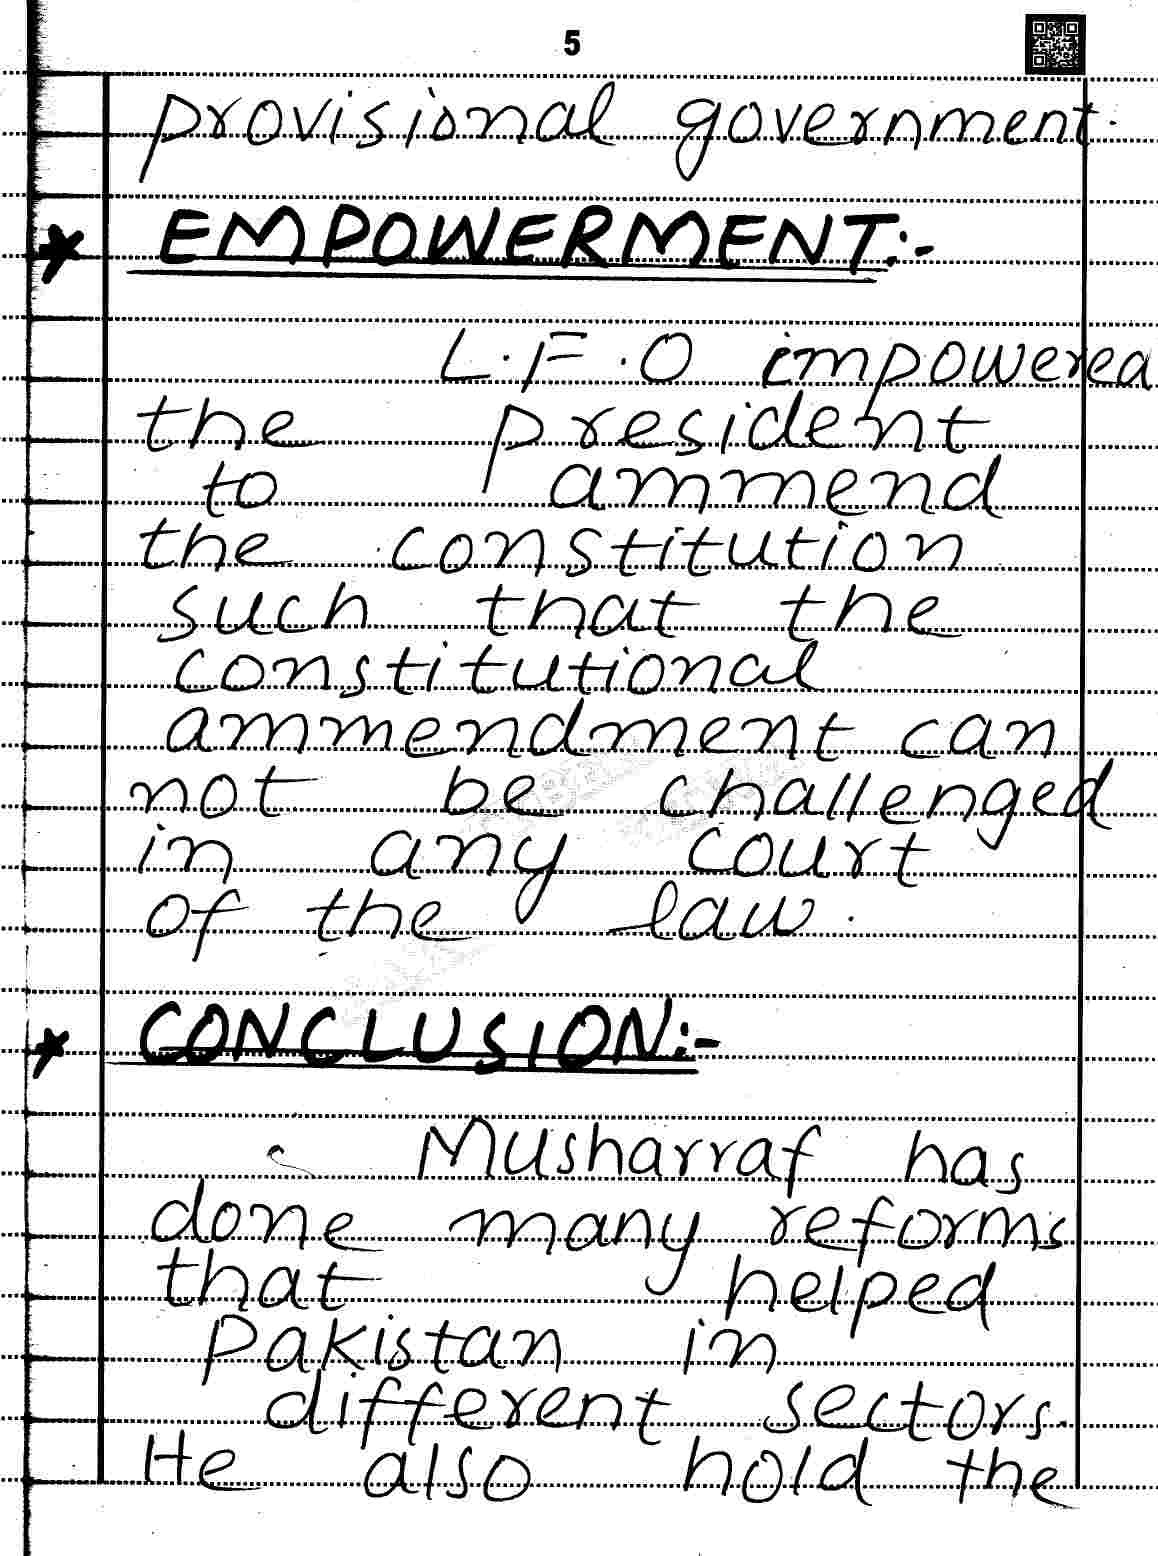 5
provisional government.
* EMPOWERMENT:-
L.F.O impowered
the president
to ammend
the constitution
such that the
constitutional
ammendment can
not be challenged
in any court
of the law.
* CONCLUSION:-
Musharraf has
done many reforms
that helped
Pakistan in
different sectors.
He also hold the